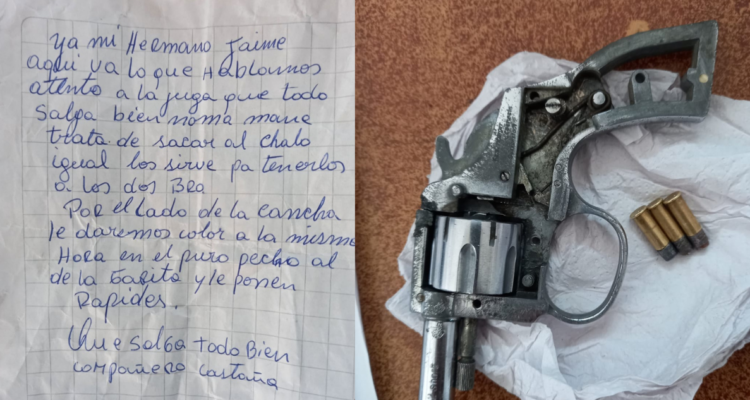 Ya mi Hermano Jaime
aqui va lo que Hablamos
atento a la juga que todo
salga bien noma mane
trata de sacar al chalo
igual los sirve pa tenerlos
a los dos Bro
Por el lado de la cancha
le daremos color a la misma
Hora en el puro pecho al
de la Garita y le ponen
Rapides.
Que Salga todo Bien
compañero castaña